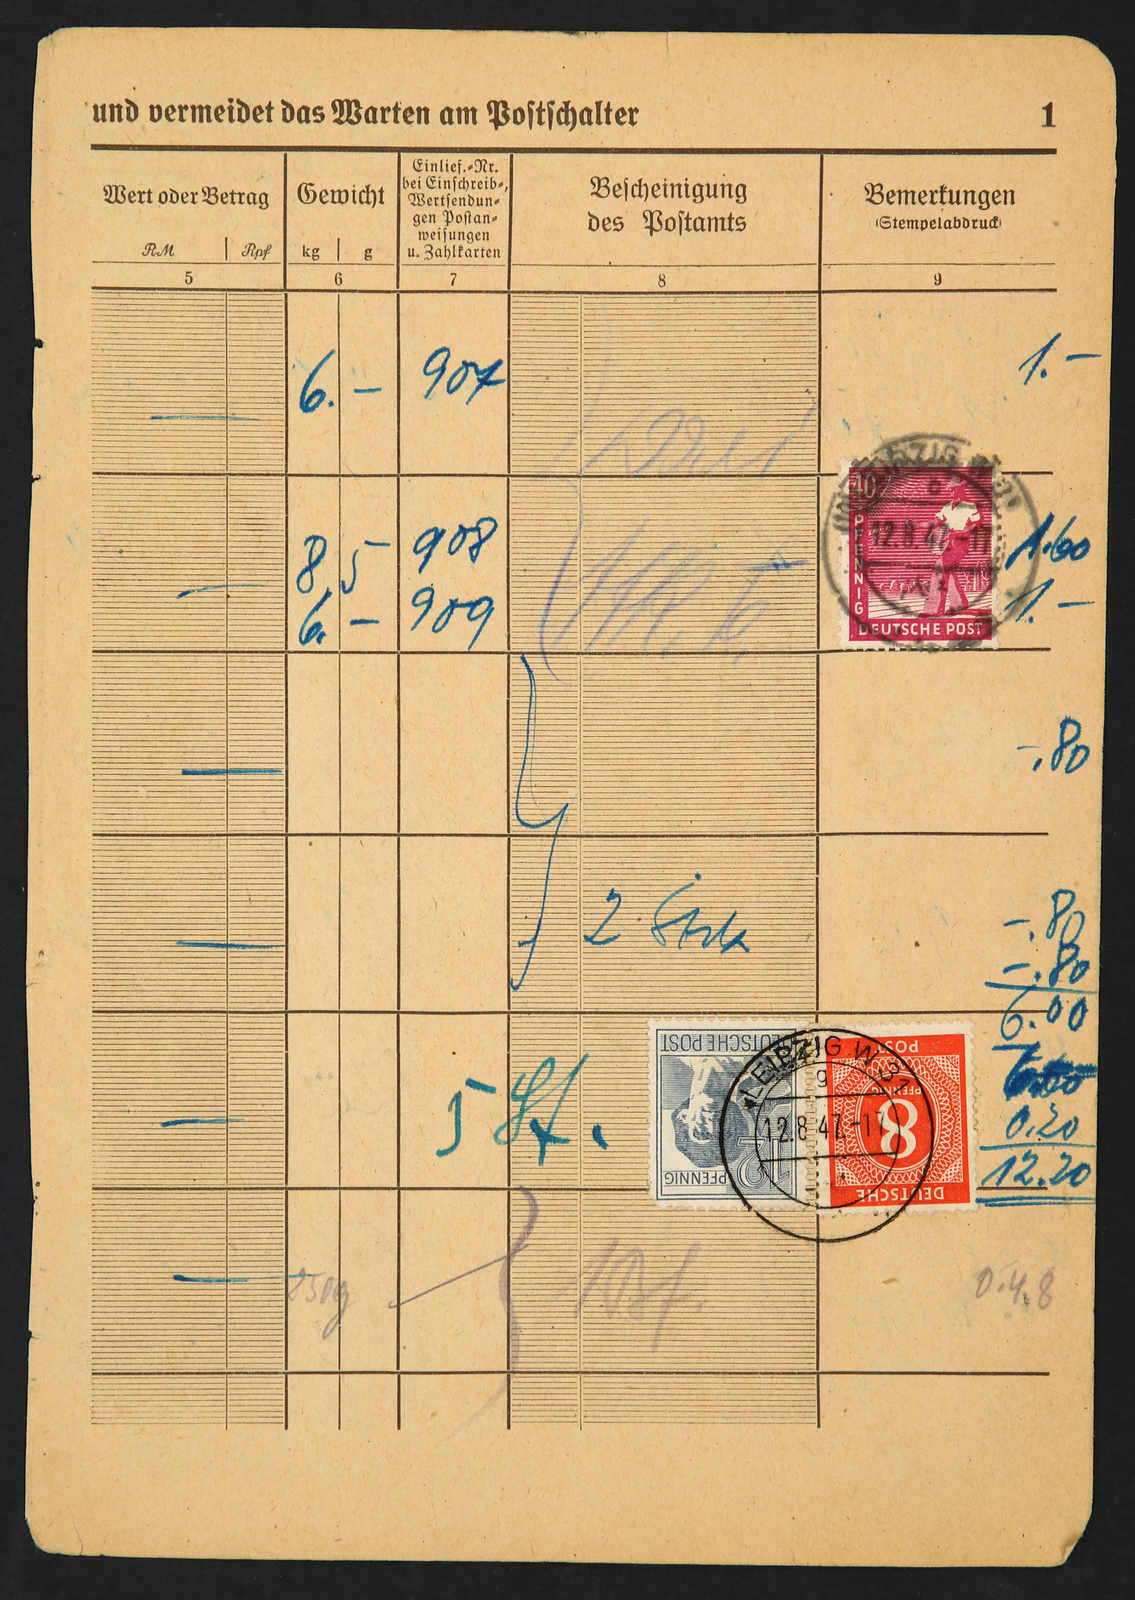 und vermeidet das Warten am Postschalter 1
Wert oder Betrag
RM Rpf
Gewicht
kg g
Einlief.-Nr.
bei Einschreib-,
Wertsendun-
gen Postan-
weisungen
u. Zahlkarten
Bescheinigung
des Postamts
Bemerkungen
(Stempelabdruck)
5 6 7 8 9
6. – 907 1.–
LEIPZIG
40
PFENNIG
12.8.47.-17
DEUTSCHE POST
8,5 908 1.60
6. – 909 1.–
-.80
2 Stck -.80
-.80
6.00
DEUTSCHE POST
12
PFENNIG
LEIPZIG W 31
g
12.8.47.-17
DEUTSCHE
POST
8
PFENNIG
5 St.
0.20
12.20
250g 0.48